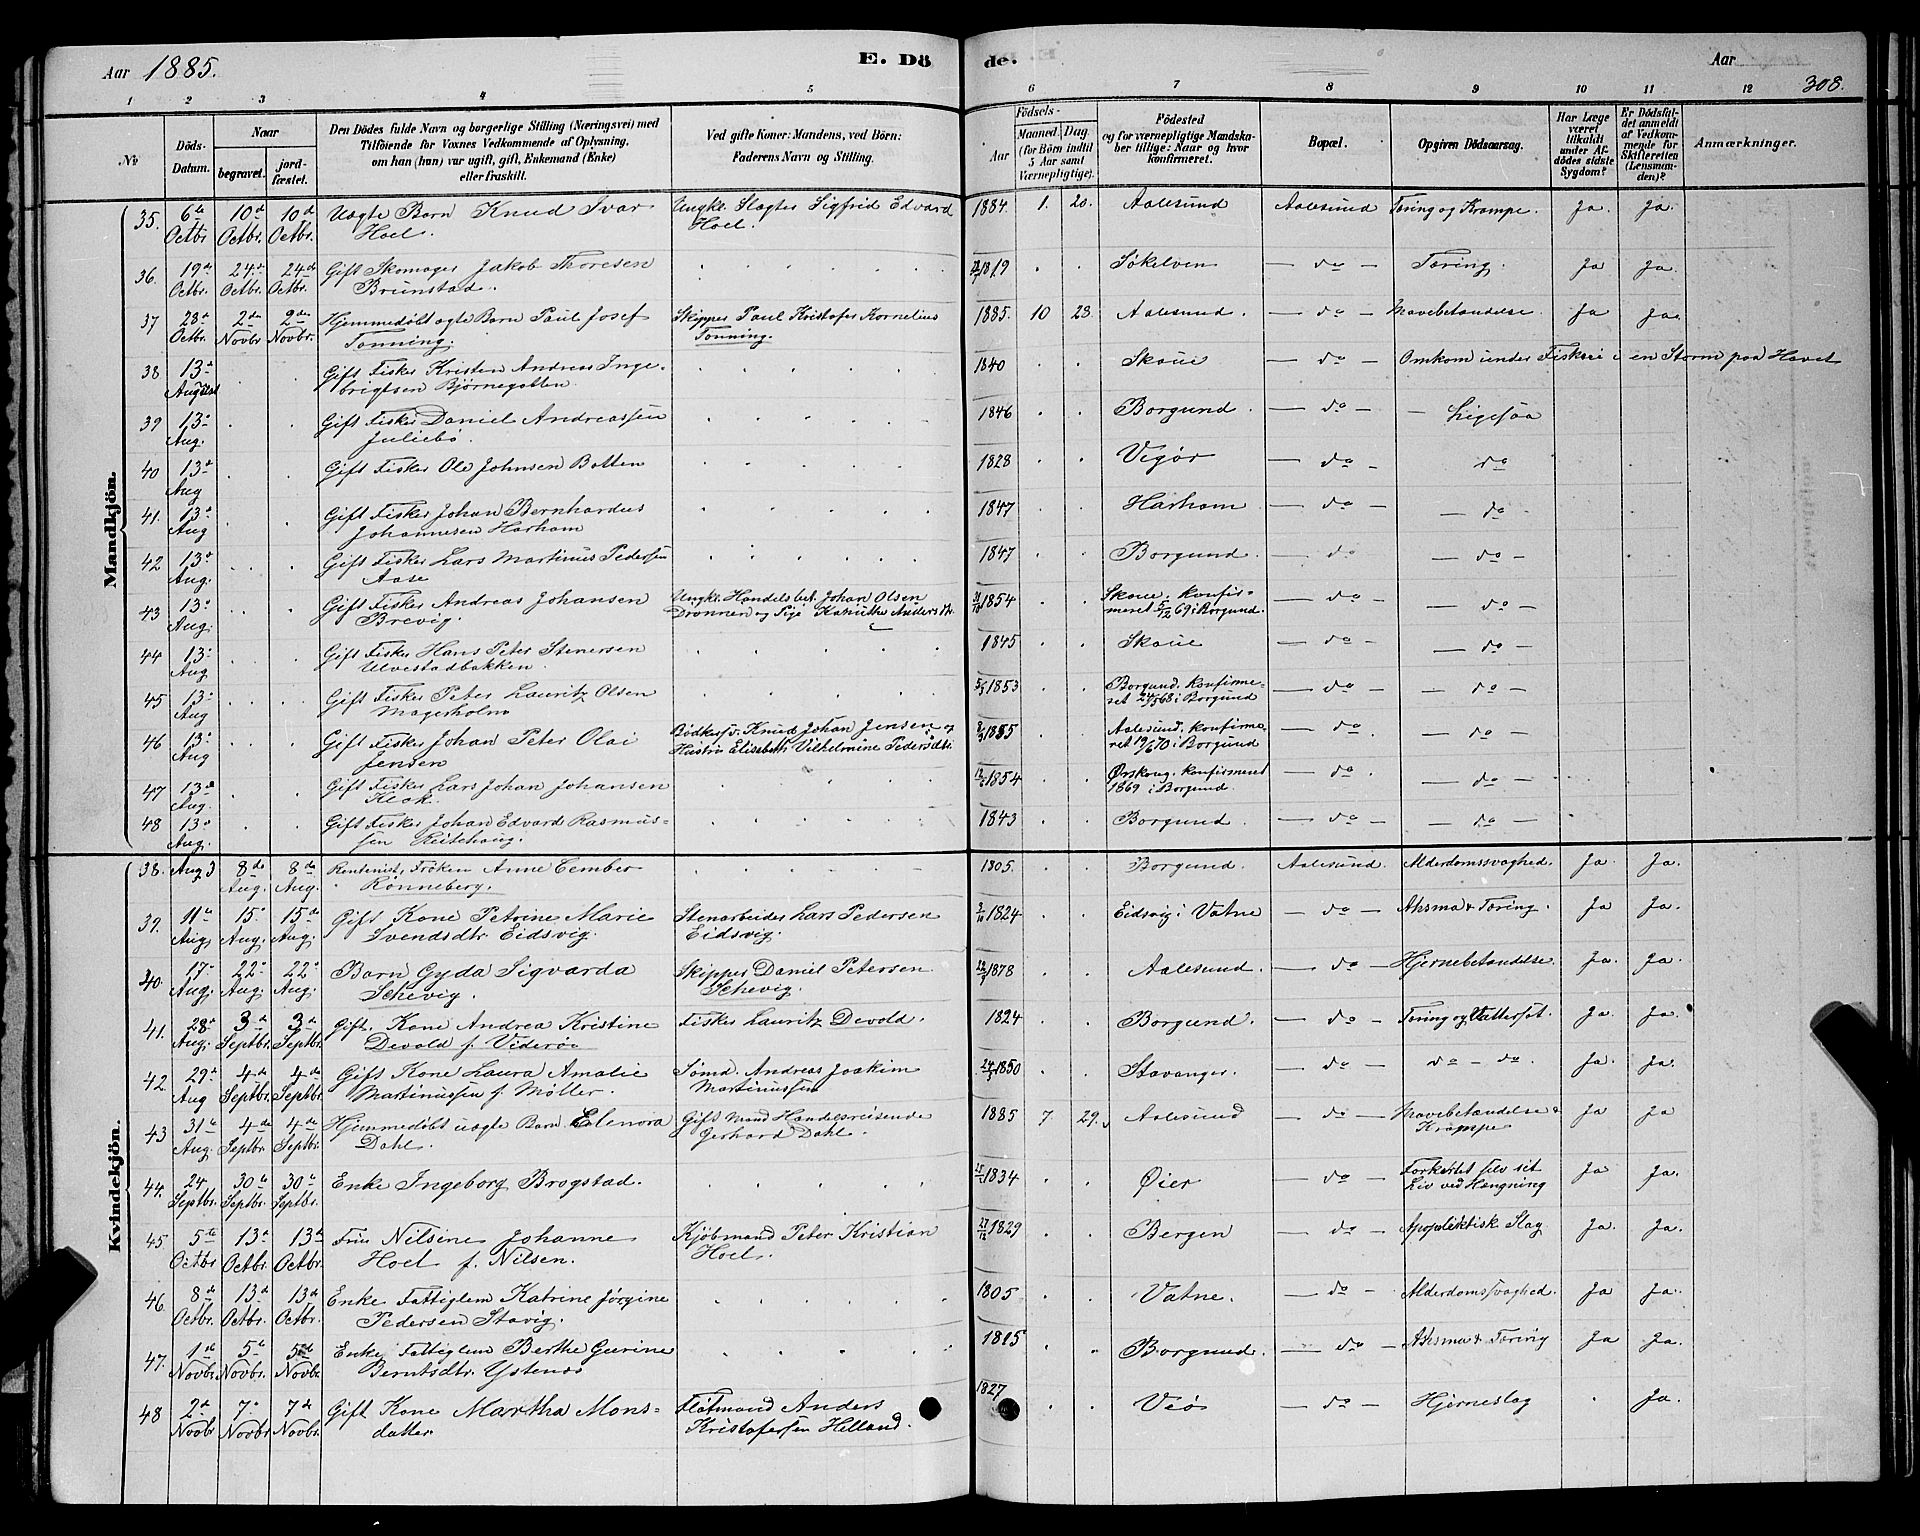 Aar 1885.
E. Dö
de.
Aar
308.
1 2 3 4 5 6 7 8 9 10 11 12
No
Döds-Datum.
Naar
begravet.
jordfæstet.
Den Dödes fulde Navn og borgerlige Stilling (Næringsvei) med
Tilföiende for Voxnes Vedkommende af Oplysning,
om han (hun) var ugift, gift, Enkemand (Enke)
eller fraskilt.
Ved gifte Koner: Mandens, ved Börn:
Faderens Navn og Stilling.
Födsels-
Aar
Maaned. Dag.
(for Börn indtil
5 Aar samt
Værnepligtige).
Födested
og for værnepligtige Mandska-
ber tillige: Naar og hvor
konfirmeret.
Bopæl.
Opgiven Dödsaarsag.
Har Læge
været
tilkaldt
under Af-
dödes sidste
Sygdom?
Er Dödsfal-
det anmeldt
af Vedkom-
mende for
Skifteretten
(Lensman-
den)?
Anmærkninger.
Mandkjön.
35. 6te Octbr. 10de Octbr. 10de Octbr. Uægte Barn Knud Ivar Hoel. Ungkl. Slagter Sigfrid Edvard Hoel. 1884. 1. 20. Aalesund Aalesund Tæring og Krampe. Ja. Ja.
36. 19de Octbr. 24de Octbr. 24de Octbr. Gift Skomager Jakob Thoresen Brunstad. 1819 Søkelven — do — Tæring. Ja Ja.
37 28de Octbr. 2den Novbr 2den Novbr. Hjemmedøbt ægte Barn Paul Josef Tonning. Skipper Paul Kristofer Kornelius Tonning. 1885. 10 23. Aalesund. — do — Mavebetændelse. Ja Ja.
38 13de August Gift Fisker Kristen Andreas Inge-
brigtsen Bjørnegotten. 1840 Skoue — do — Omkom under Fiskeri i en Storm paa Havet
39 13de Aug. Gift Fisker Daniel Andreassen Juliebø. 1846 Borgund. — do — — Ligesaa
40 13de Aug Gift Fisker Ole Johnsen Botten 1828 Vigør — do — do
41. 13de Aug Gift Fisker Johan Bernhardus Johannesen Harham 1847 Harham — do — — do
42 13de Aug. Gift Fisker Lars Martinus Pedersen Aase 1847 Borgund. — do — do —
43 13de Aug. Gift Fisker Andreas Johansen Brevig. Ungkl. Handelsbet. Johan Olsen Drønnen og Pige Anders dtr. 1854 Skoue. konfir-
meret 5/12 69 i Borgund. — do — — do —
44 13de Aug Gift Fisker Hans Peter Stenersen Ulvestadbakken. 1845 Skoue — do — — do —
45 13de Aug Gift Fisker Peter Lauritz Olsen Magerholm 1853 Borgund. konfirme-
ret 24/5 68 i Borgund — do — — do —
46 13de Aug Gift Fisker Johan Peter Olai Jensen Bødkersv. Knud Johan Jensen og Hustru Elisabeth Vilhelmine Pedersdtr. 1855 Aalesund. konfirme-
ret 19/6 70 i Borgund — do — do —
47 13de Aug. Gift Fisker Lars Johan Johansen Klok. 1854 Ørskoug. konfirmeret 1869 i Borgund. — do. — do —
48 13de Aug. Gift Fisker Johan Edvard Rasmus-
sen 1843 Borgund. — do — — do —
Kvindekjön.
38. Aug 3 8de Aug. 8de Aug. Rentenist, Frøken Anne Cember Rønneberg. 1805. Borgund. Aalesund. Alderdomssvaghed. Ja. Ja.
39. 11te Aug. 15 Aug. 15de Aug. Gift Kone Petrine Marie Svendsdtr. Eidsvig. Stenarbeider Lars Pedersen Eidsvig. 1824 Eidsvig i Vatne — do — Ahsma & Tæring. Ja Ja.
40. 17de Aug. 22de Aug. 22de Aug. Barn Gyda Sigvarda Schevig. Skipper Daniel Petersen Schevig. 1878 Aalesund. — do — Hjernebetændelse. Ja. Ja.
41. 28de Aug. 3de Septbr. 3de Septbr. Gift. Kone Andrea Kristine Devold f. Viderøe Fisker Lauritz Devold. 1824 Borgund. — do — Tæring og Vattersot. Ja. Ja.
42. 29de Aug 4de Septbr. 4de Septbr. Gift Kone Laura Amalie Martinussen f. Møller. Sømd. Andreas Joakim Martinussen 1850 Stavanger. — do — do — do. Ja. Ja.
43 31te Aug. 4de Septbr. 4de Septbr. Hjemmedøbt uægte Barn Elenora Dahl. Gift Mand Handelsreisende Gerhard Dahl. 1885 7 29. Aalesund — do — Mavebetændelse & Krampe Ja Ja
44. 24 Septbr. 30te Septbr. 30te Septbr. Enke Ingeborg Brogstad. 1834 Øier — do Forkortet selv sit Liv ved Hængning Ja Ja.
45 5te Octbr 13de Octbr. 13de Octbr. Fru Nilsine Johanne Hoel f. Nilsen. Kjøbmand Peter Kristian Hoel. 1829 Bergen — do — Apoplektisk Slag Ja. Ja.
46. 8de Octbr. 13de Octbr. 13de Octbr. Enke Fattiglem Katrine Jørgine Pedersen Stavig. 1805 Vatne. — do — Alderdomssvaghed. Ja Ja.
47. 1ste Novbr. 5te Novbr. 5te Novbr. Enke Fattiglem Berthe Gurine Berntsdtr. Ystenæs 1815 Borgund. — do — Ahsma & Tæring Ja Ja.
48 2de Novbr 7de Novbr 7de Novbr. Gift Kone Martha Mons-
datter Flotmand Anders Kristofersen Helland. 1827 Veø — do — Hjerneslag Ja.